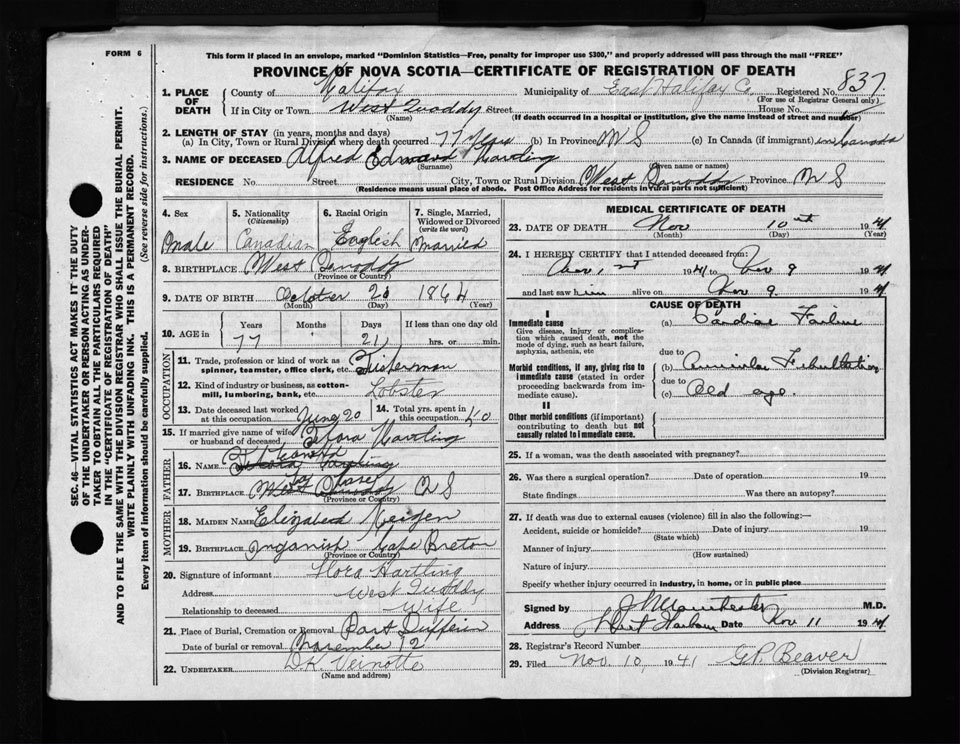 FORM 6
This form if placed in an envelope, marked "Dominion Statistics—Free, penalty for improper use $300," and properly addressed will pass through the mail "FREE"
PROVINCE OF NOVA SCOTIA—CERTIFICATE OF REGISTRATION OF DEATH
837
1. PLACE OF DEATH
County of Halifax Municipality of East Halifax Co. Registered No.
(For use of Registrar General only)
If in City or Town West Quoddy Street House No.
(Name) (If death occurred in a hospital or institution, give the name instead of street and number)
2. LENGTH OF STAY (in years, months and days)
(a) In City, Town or Rural Division where death occurred 77 years (b) In Province N S (c) In Canada (if immigrant) in Canada
3. NAME OF DECEASED Alfred Edward Hartling
(Surname) (Given name or names)
RESIDENCE No. Street City, Town or Rural Division West Quoddy Province N S
(Residence means usual place of abode. Post Office Address for residents in rural parts not sufficient)
4. Sex Male
5. Nationality (Citizenship) Canadian
6. Racial Origin English
7. Single, Married, Widowed or Divorced (write the word) Married
8. BIRTHPLACE West Quoddy
(Province or Country)
9. DATE OF BIRTH October 20 1864
(Month) (Day) (Year)
10. AGE in Years Months Days If less than one day old
77 21 hrs. or min.
OCCUPATION
11. Trade, profession or kind of work as spinner, teamster, office clerk, etc. Fisherman
12. Kind of industry or business, as cotton-mill, lumbering, bank, etc. Lobster
13. Date deceased last worked at this occupation June 20
14. Total yrs. spent in this occupation 50
15. If married give name of wife or husband of deceased Hartling
FATHER
16. NAME
17. BIRTHPLACE N S
(Province or Country)
MOTHER
18. MAIDEN NAME Elizabeth
19. BIRTHPLACE Inganish Cape Breton
(Province or Country)
20. Signature of informant Flora Hartling
Address West Quoddy
Relationship to deceased Wife
21. Place of Burial, Cremation or Removal Port Dufferin
Date of burial or removal November 12
22. UNDERTAKER D.K. Veinotte
(Name and address)
MEDICAL CERTIFICATE OF DEATH
23. DATE OF DEATH Nov 10th 1941
(Month) (Day) (Year)
24. I HEREBY CERTIFY that I attended deceased from:
Nov 1st 1941 to Nov 9 1941
and last saw him alive on Nov 9. 1941
CAUSE OF DEATH
I
Immediate cause
Give disease, injury or complication which caused death, not the mode of dying, such as heart failure, asphyxia, asthenia, etc
(a) Cardiac Failure
due to
Morbid conditions, if any, giving rise to immediate cause (stated in order proceeding backwards from immediate cause).
(b) Auricular Fibrillation
due to
(c) Old age
II
Other morbid conditions (if important) contributing to death but not causally related to immediate cause.
25. If a woman, was the death associated with pregnancy?
26. Was there a surgical operation? Date of operation 19
State findings Was there an autopsy?
27. If death was due to external causes (violence) fill in also the following:—
Accident, suicide or homicide? Date of injury 19
(State which)
Manner of injury
(How sustained)
Nature of injury
Specify whether injury occurred in industry, in home, or in public place
Signed by M.D.
Address Harbour Date Nov 11 1941
28. Registrar's Record Number
29. Filed Nov. 10, 1941 G.P. Beaver
(Division Registrar)
SEC. 46—VITAL STATISTICS ACT MAKES IT THE DUTY OF THE UNDERTAKER OR PERSON ACTING AS UNDERTAKER TO OBTAIN ALL THE PARTICULARS REQUIRED IN THE "CERTIFICATE OF REGISTRATION OF DEATH"
AND TO FILE THE SAME WITH THE DIVISION REGISTRAR WHO SHALL ISSUE THE BURIAL PERMIT.
WRITE PLAINLY WITH UNFADING INK. THIS IS A PERMANENT RECORD.
Every item of information should be carefully supplied. (See reverse side for instructions.)